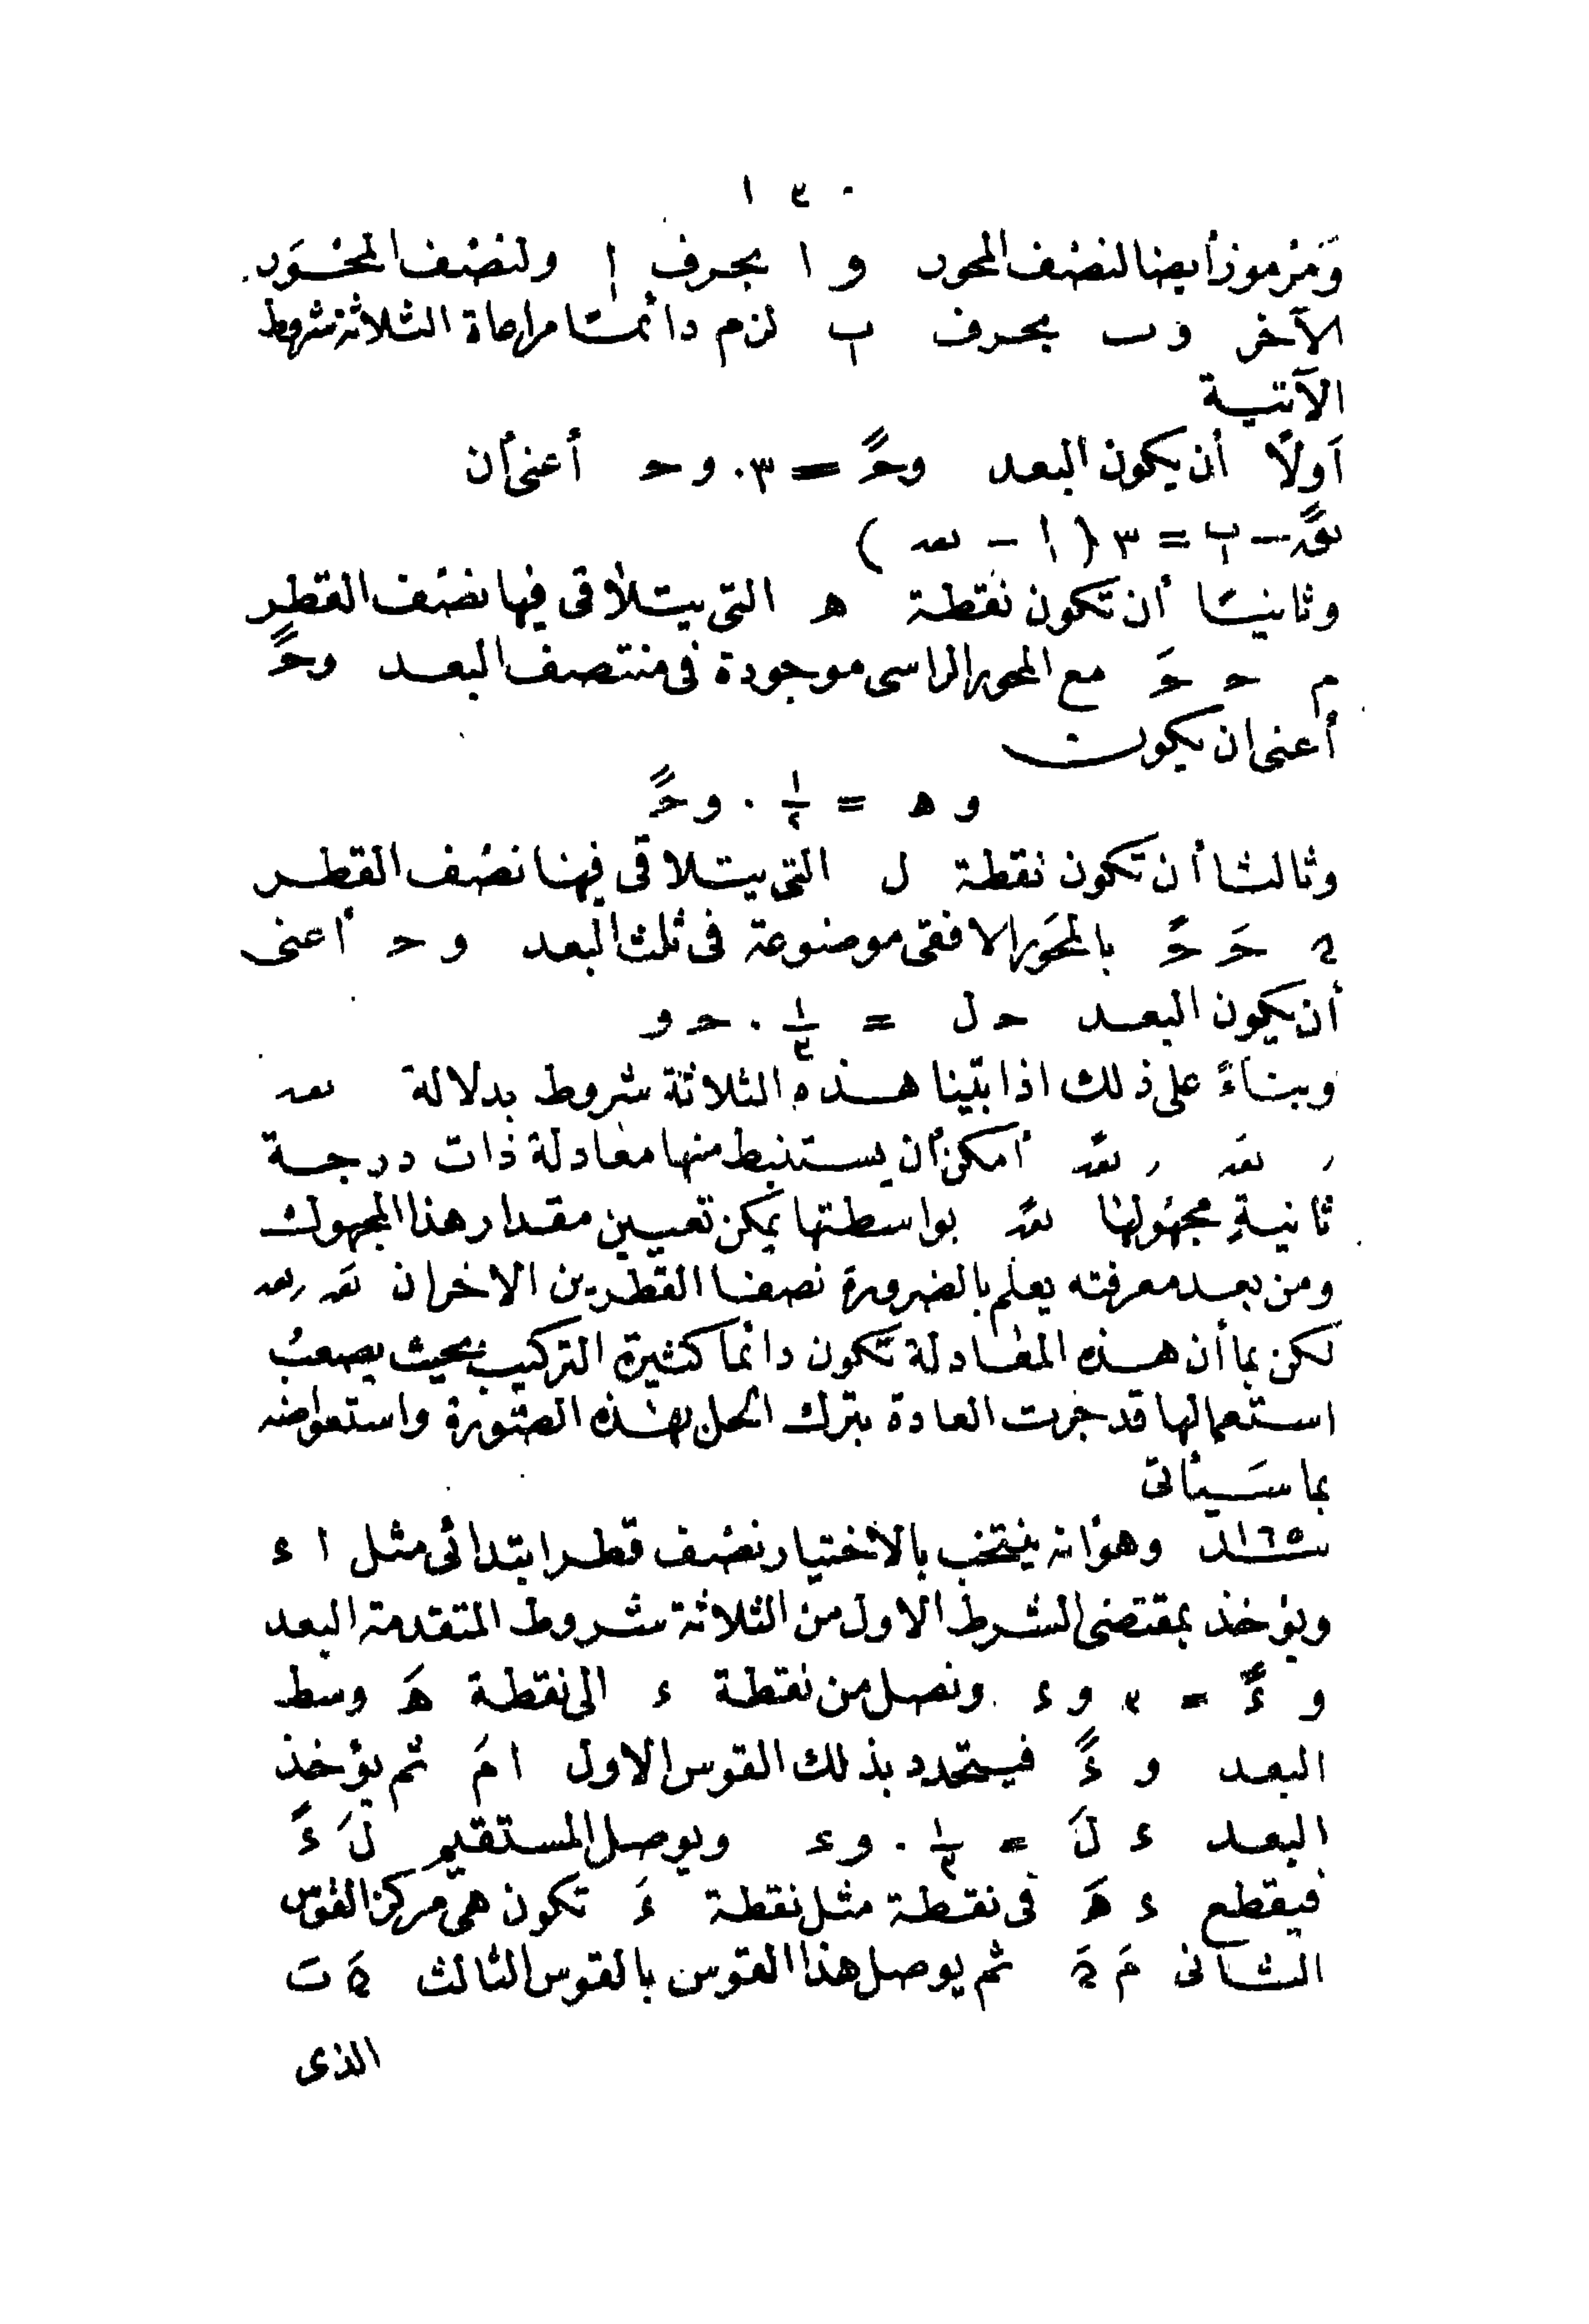 ١٣٠
ومرموز أيضا لنصف المحور و ا بحرف ا ولنصف المحور
الآخر و ب بحرف ب لزم دائما مراعاة الثلاثة شروط
الآتية
اولا أن يكون البعد وحً = ٣. وح أعنى أن
نقً – ب = ٣ (ا – نق)
وثانيا أن تكون نقطة ه التى يتلاقى فيها نصف القطر
م ح حَ مع المحور الراسى موجودة فى منتصف البعد وحً
أعنى ان يكون
و ه = ١/٢ . وحً
وثالثا أن تكون نقطة ل التى يتلاقى فيها نصف القطر
ﻥ حَ حً بالمحور الافقى موضوعة فى ثلث البعد و ح أعنى
أن يكون البعد ح ل = ١/٣ . ح و
وبناءً على ذلك اذا بينا هذه الثلاثة شروط بدلالة نق
ر نقَ ر نقً أمكن أن يستنبط منها معادلة ذات درجة
ثانية مجهولها نقً بواسطتها يمكن تعيين مقدار هذا المجهول
ومن بعد معرفته يعلم بالضرورة نصفا القطرين الاخران نقَ ر نق
لكن بما أن هذه المعادلة تكون دائما كثيرة التركيب بحيث يصعب
استعمالها قد جرت العادة بترك الحل بهذه الصورة واستعواضه
بما سيأتى
١٦٥ وهو انه ينتخب بالاختيار نصف قطر ابتدائى مثل ا ء
ويؤخذ بمقتضى الشرط الاول من الثلاثة شروط المتقدمة البعد
و ءً = ٣ و ء ونصل من نقطة ء الى نقطة هَ وسط
البعد و ءً فيتحدد بذلك القوس الاول ا مَ ثم يؤخذ
البعد ء لَ = ١/٣ . و ء ويوصل المستقيم لَ ءً
فيقطع ء هَ فى نقطة مثل نقطة ءَ تكون هى مركز القوس
الثانى مَ ﻥَ ثم يوصل هذا القوس بالقوس الثالث ﻥَ بَ
الذى